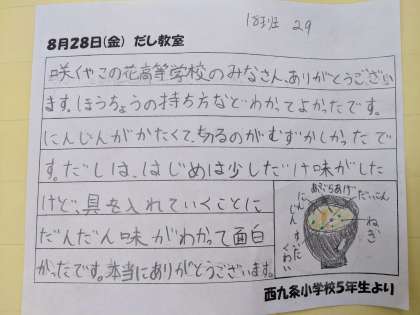 1８班 29
8月28日(金) だし教室
咲くやこの花高等学校のみなさん、ありがとうござい
ます。ほうちょうの持ち方などわかってよかったです。
にんじんがかたくて、切るのがむずかしかったで
す。だしは、はじめは少しだけ味がした
けど、具を入れていくことに
だんだん味がわかって面白
かったです。本当にありがとうございます。
あぶらあげ
だいこん
にんじん
ねぎ
西九条小学校5年生より